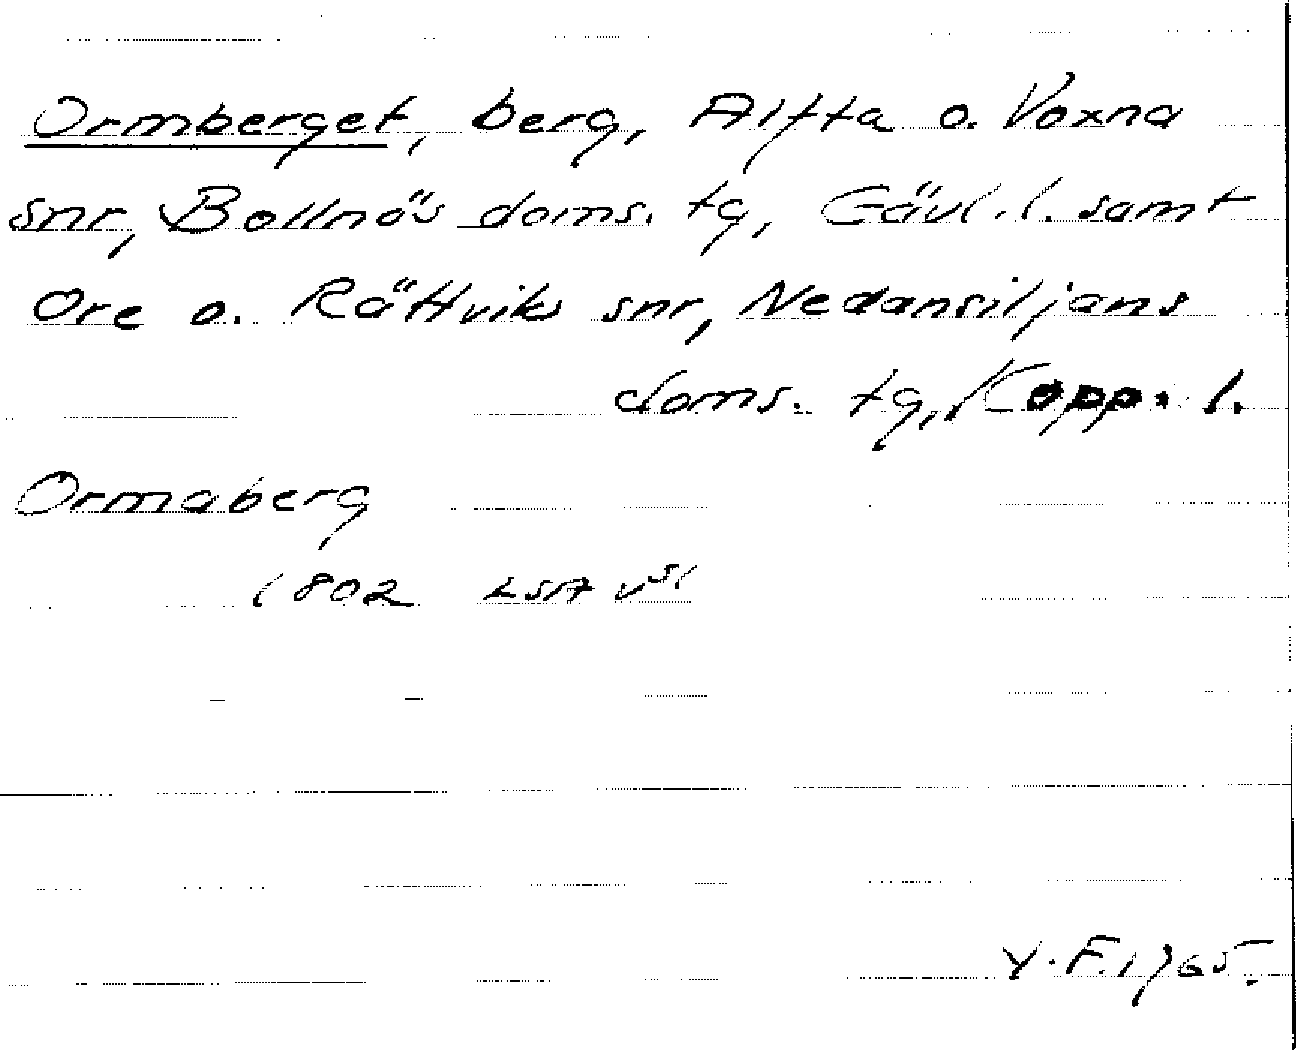 Ormberget, berg, Alfta o. Voxna
snr, Bollnäs doms. tg, Gävl. l. samt
Ore o. Rättviks snr, Nedansiljans
doms. tg, Kopp. l.
Ormaberg
1802 LSA V51
Y. F. 1965.